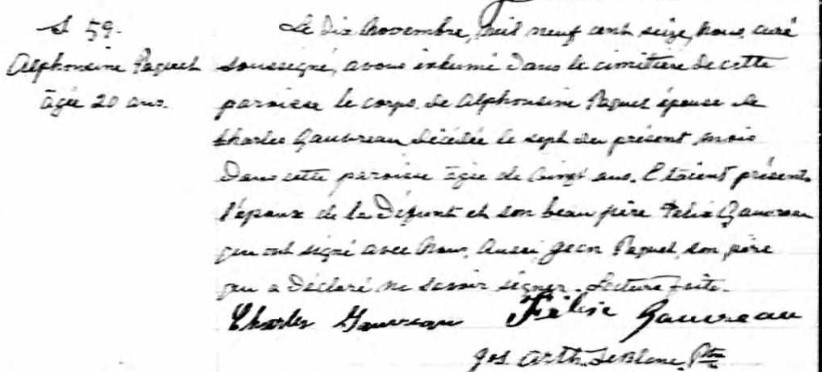 S 59.
Alphonsine Paquet
âgée 20 ans.
Le dix Novembre, mil neuf cent seize, Nous, curé
soussigné, avons inhumé dans le cimitière de cette
paroisse le corps de Alphonsine Paquet épouse de
Charles Gauvreau décédée le sept du présent mois
Dans cette paroisse âgée de vingt ans. Etaient présents
l'époux de la Défunt et son beau père Félix Gauvreau
qui ont signé avec Nous. Aussi Jean Paquet, son père
qui a déclaré ne savoir signer. Lecture faite.
Charles Gauvreau Félix Gauvreau
Jos. Arth. LeBlanc, Ptre